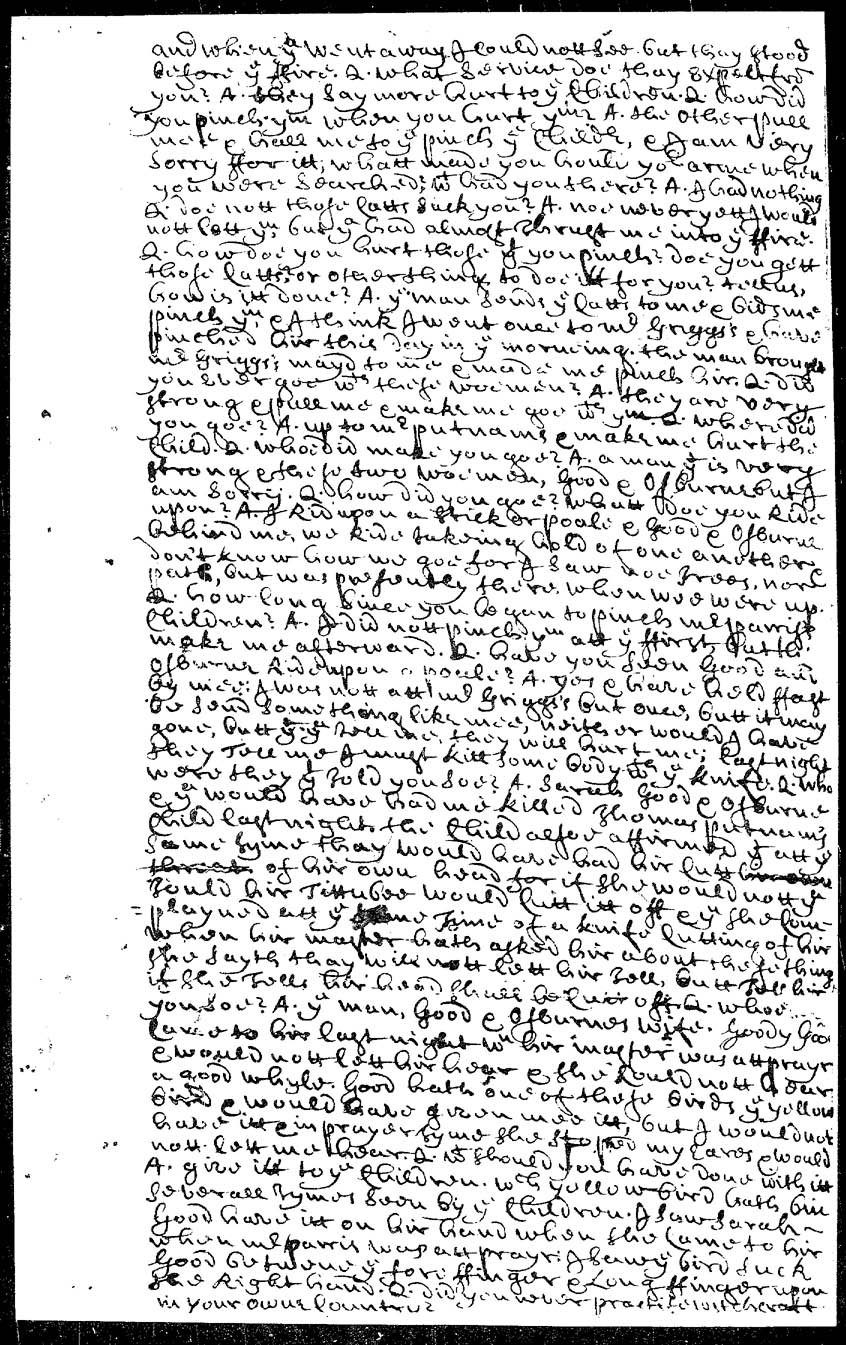 and when yᵉ went away I could nott See. but thay stood
before yᵉ ffire. Q. what Service doe thay Expect frō
you? A. they Say more hurt to yᵉ Children. Q. how did
you pinch yᵐ when you hurt yᵐ? A. the other pull
mee & hall me to yᵉ pinch yᵉ Childr, & I am very
Sorry ffor itt, whatt made you hould yoᵉ arme when
you were Searched? wᵗ had you there? A. I had nothing
Q. doe nott those Catts Suck you? A. noe never yett I would
nott lett yᵐ, but yᵉ had almost thrust me into yᵉ ffire.
Q. how doe you hurt those yᵗ you pinch? doe you gett
those Catts? or other things to doe itt for you? tell us,
how is itt done? A. yᵉ man Sends yᵉ Catts to me & bids me
pinch yᵐ, & I think I went once to mʳ Griggs's & have
pinched hir this day in yᵉ morneing. the man brought
mʳ Griggs's mayd to me & made me pinch hir. Q. did
you Ever goe wᵗʰ these woemen? A. they are very
strong & pull me & make me goe wᵗʰ yᵐ. Q. where did
you goe? A. up to mʳ putnams & make me hurt the
Child. Q. who did make you goe? A. a man yᵗ is very
strong & these two woemen, Good & Osburne but I
am Sorry. Q. how did you goe? whatt doe you Ride
upon? A. I Rid upon a Stick or poale & Good & Osburne
behind me, we Ride takeing hold of one another
don't know how we goe for I Saw noe Trees, nore
path, but was presently there. when wee were up.
Q. how long Since you began to pinch mʳ parriss
Children? A. I did nott pinch yᵐ att yᵉ ffirst, butt
make me afterward. Q. have you Seen Good and
Osburne Ride upon a poule? A. yes & have held ffast
by mee: I was nott att mʳ Griggs's but once, butt it may
be Send Something like mee, neither would I have
gone, butt yᵗ yᵉ Tell me, they will hurt me; last night
they Tell me I must kill Some body wᵗʰ yᵉ knife. Q. who
were they yᵗ Told you Soe? A. Sarah Good & Osburne
& yᵉ would have had me killed Thomas putnam's
Child last night. the Child alsoe affirmed yᵗ att yᵉ
Same Tyme thay would have had hir Cutt
of hir own head for if She would nott yᵉ
Tould hir Tittubee would Cutt itt off & yᵗ She Com
playned att yᵉ Same Time of a knife Cutting of hir
when hir master hath asked hir about these things
She Sayth thay will nott lett hir Tell, butt Tell hir
if She Tells hir head Shall be Cutt off. Q. whoe
you Soe? A. yᵉ man, Good & Osburnes wife. Goody Goo
Came to hir last night wⁿ hir master was att prayr
& would nott lett hir hear & She Could nott hear
a good whyle. Good hath one of these birds yᵉ yellow
bird & would have given mee itt, but I would not
have itt & in prayer Tyme She stoped my Eares & would
nott lett me hear. Q. wᵗ Should you have done with itt
A. give itt to yᵉ Children. wᶜʰ yellow bird hath bin
Severall Tymes Seen by yᵉ Children. I Saw Sarah
Good have itt on hir hand when She Came to hir
when mʳ parris was att prayr: I Saw yᵉ bird Suck
Good betwene yᵉ fore ffinger & Long ffinger upon
the Right hand. Q. did you never practise witchcraft
in your owne Countrÿ?